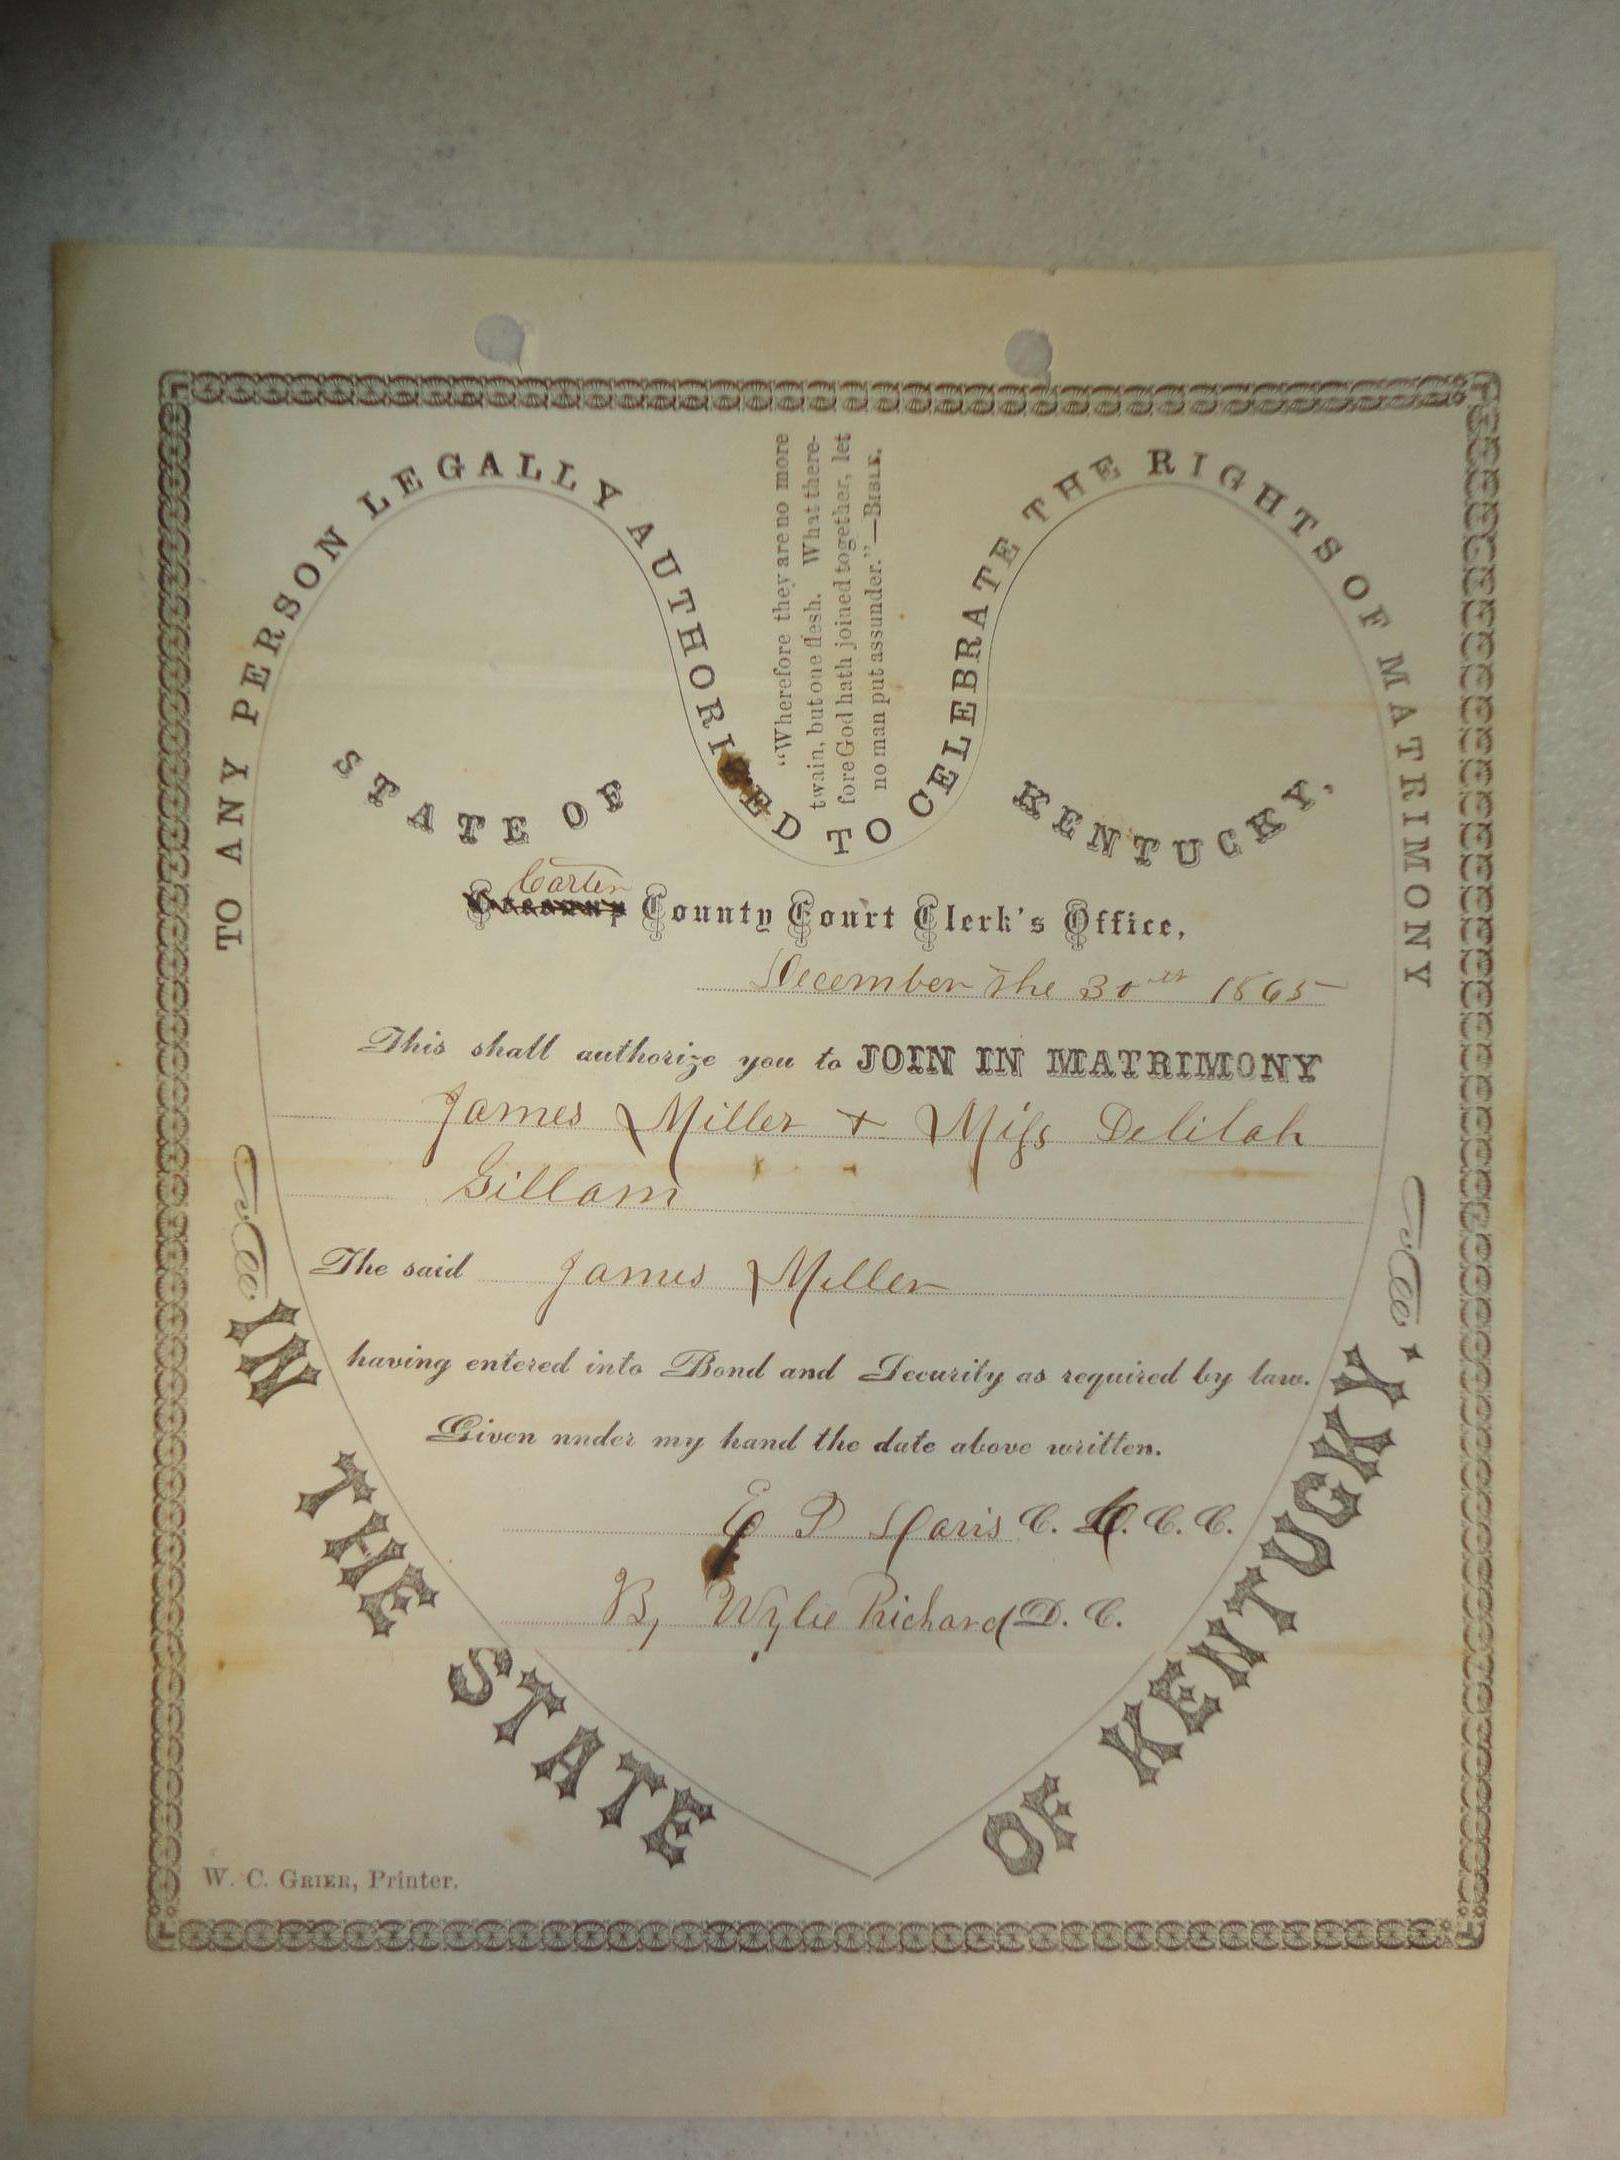 TO ANY PERSON LEGALLY AUTHORIZED TO CELEBRATE THE RIGHTS OF MATRIMONY
"Wherefore they are no more
twain, but one flesh. What there-
fore God hath joined together, let
no man put assunder."—BIBLE.
STATE OF KENTUCKY,
Carter
County Court Clerk's Office,
December the 30 1865
This shall authorize you to JOIN IN MATRIMONY
James Miller + Miss Delilah
Gillam
The said James Miller
having entered into Bond and Security as required by law.
Given nnder my hand the date above written.
E P Davis C. C. C. C.
By Wylie Richard D. C.
IN THE STATE OF KENTUCKY.
W. C. GRIER, Printer.